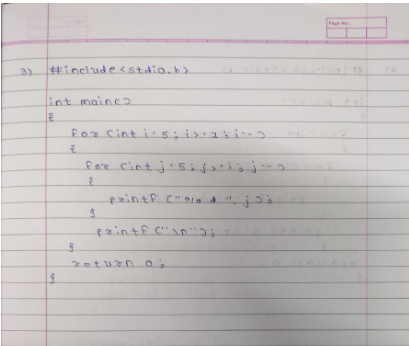 Page No.
3) #include <stdio.h>
int main()
{
for (int i=5; i>=1; i--)
{
for (int j=5; j>=i; j--)
{
printf ("%d ", j);
}
printf ("\n");
}
return 0;
}